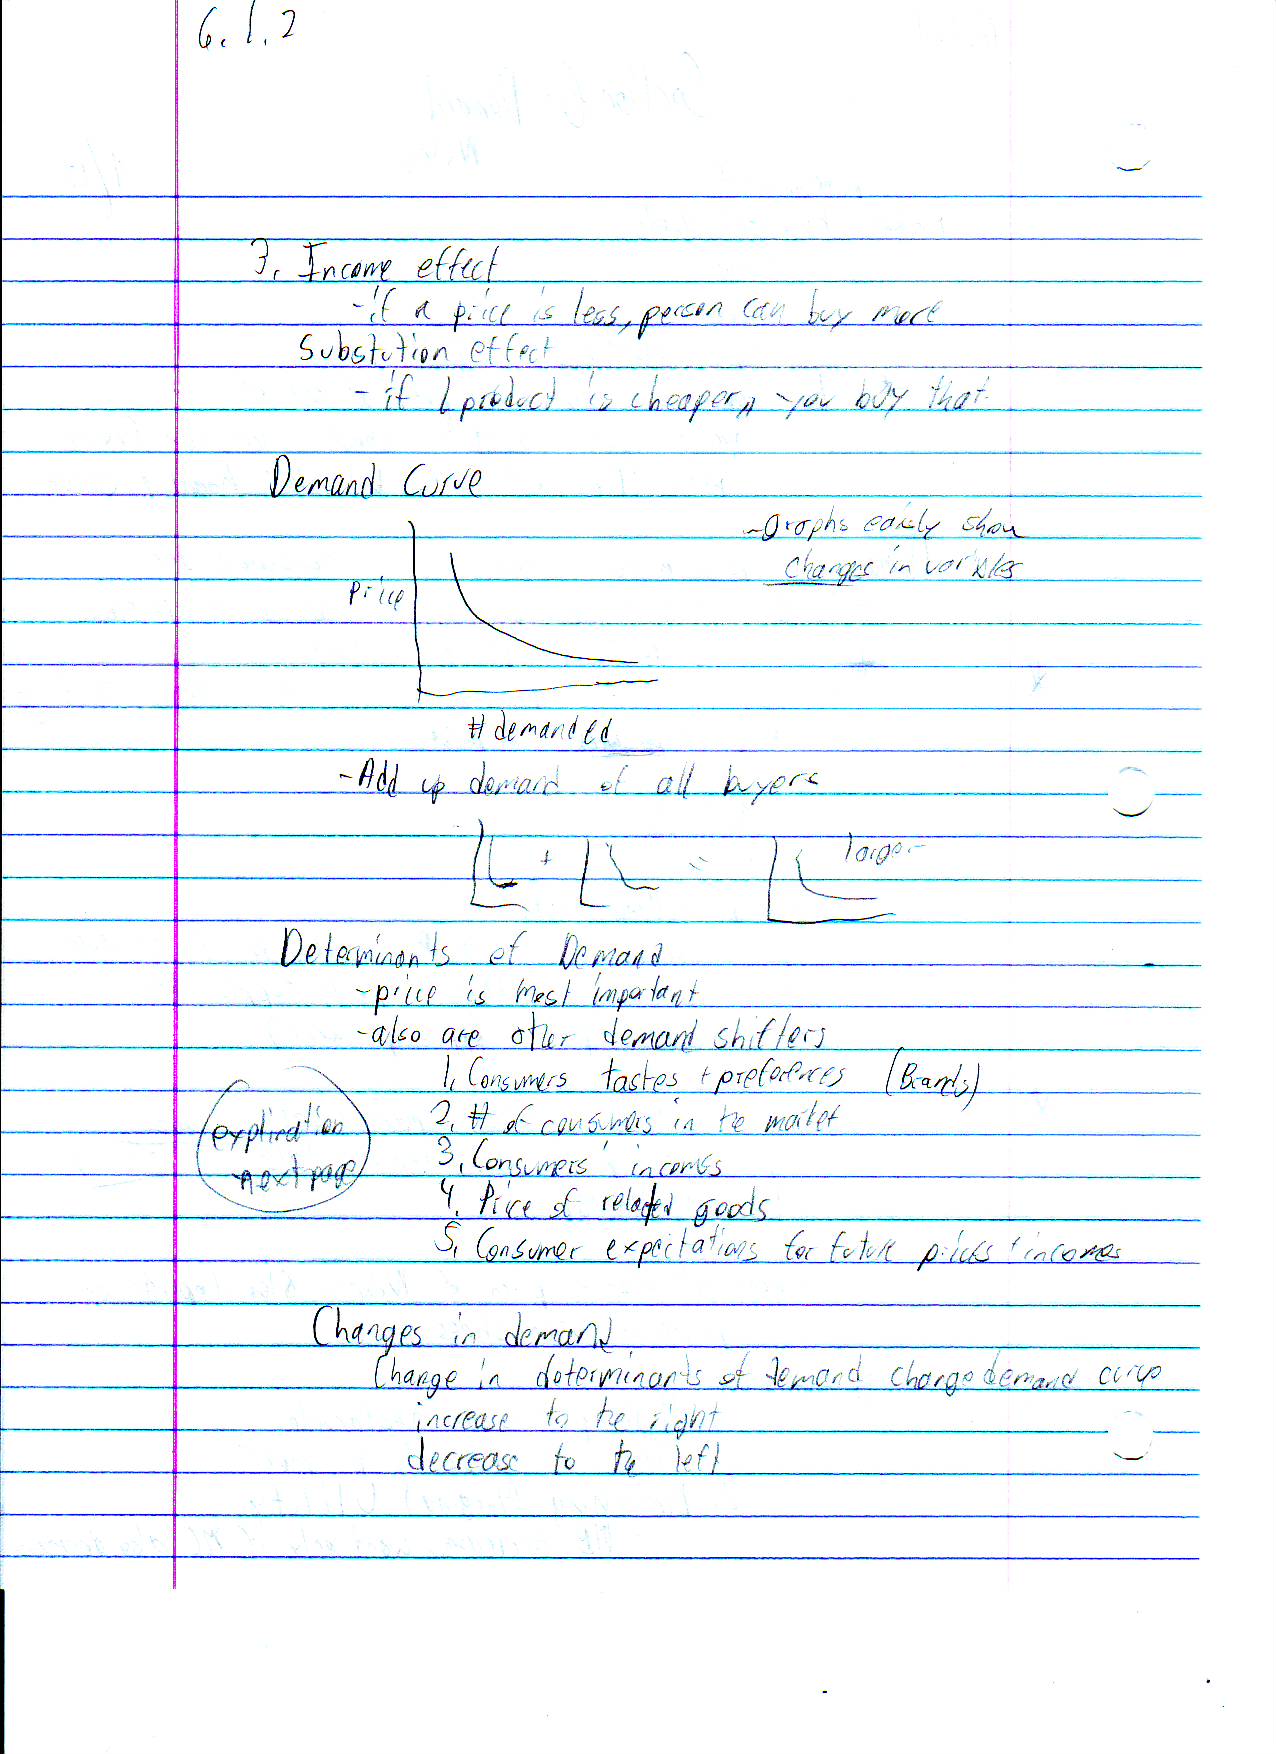 6.1.2
3. Income effect
-if a price is less, person can buy more
Substution effect
-if 1 product is cheaper, you buy that
Demand Curve
-Graphs easily show
changes in variables
Price
# demanded
-Add up demand of all buyers
+ =
larger
Determinants of Demand
-price is most important
-also are other demand shifters
1. Consumers tastes + preferences (Brands)
2. # of consumers in the market
3. Consumers' incomes
4. Price of related goods
5. Consumer expectations for future prices + incomes
explination
next page
Changes in demand
Change in determinants of demand change demand curve
increase to the right
decrease to the left